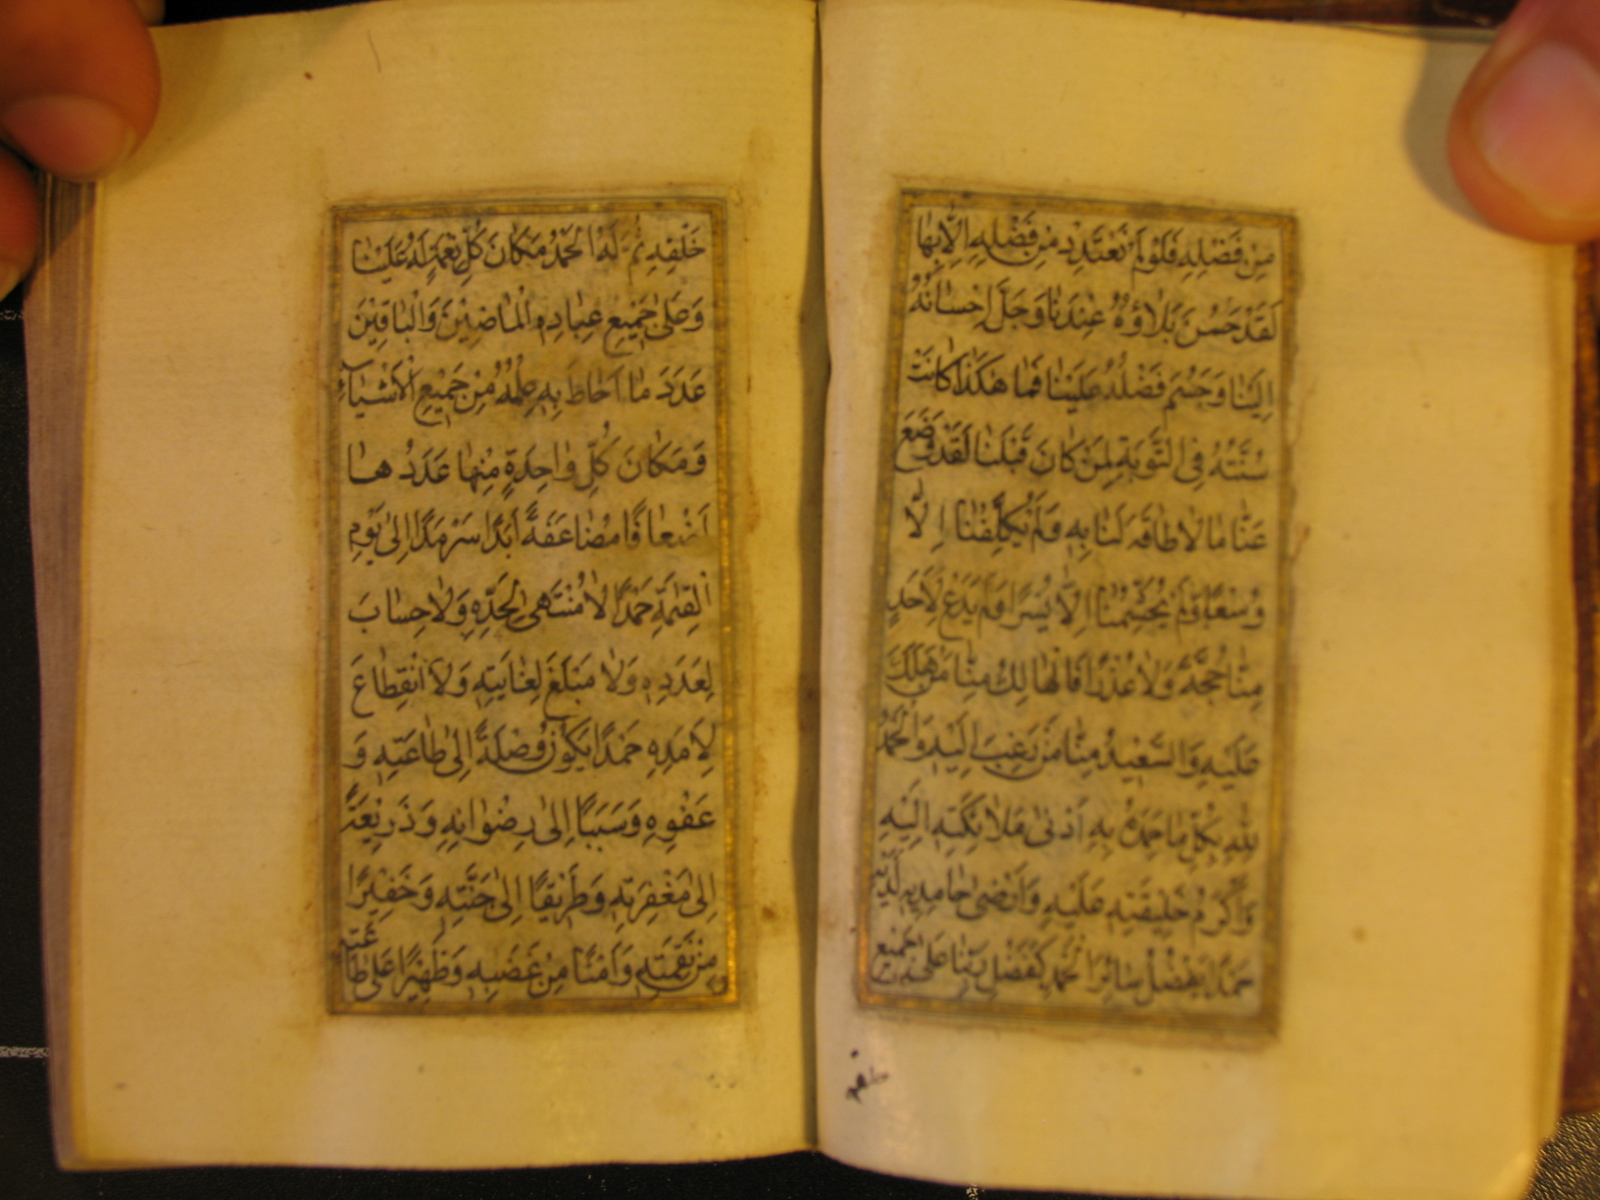 مِنْ فَضْلِهِ فَلَوْ لَمْ نَعْتَدِدْ مِنْ فَضْلِهِ اِلَّا بِهَا
لَقَدْ حَسُنَ بَلَاؤُهُ عِنْدَنَا وَجَلَّ اِحْسَانُهُ
اِلَيْنَا وَجَسُمَ فَضْلُهُ عَلَيْنَا فَمَا هٰكَذَا كَانَتْ
سُنَّتُهُ فِى التَّوْبَةِ لِمَنْ كَانَ قَبْلَنَا لَقَدْ وَضَعَ
عَنَّا مَا لَا طَاقَةَ لَنَا بِهِ وَلَمْ يُكَلِّفْنَا اِلَّا
وُسْعًا وَلَمْ يُجَشِّمْنَا اِلَّا يُسْرًا وَلَمْ يَدَعْ لِاَحَدٍ
مِنَّا حُجَّةً وَلَا عُذْرًا فَالْهَالِكُ مِنَّا مَنْ هَلَكَ
عَلَيْهِ وَالسَّعِيْدُ مِنَّا مَنْ رَغِبَ اِلَيْهِ وَالْحَمْدُ
لِلّٰهِ بِكُلِّ مَا حَمِدَهُ بِهِ اَدْنٰى مَلَائِكَتِهِ اِلَيْهِ
وَاَكْرَمُ خَلِيْقَتِهِ عَلَيْهِ وَاَرْضٰى حَامِدِيْهِ لَدَيْهِ
حَمْدًا يَفْضُلُ سَائِرَ الْحَمْدِ كَفَضْلِ رَبِّنَا عَلٰى جَمِيْعِ
خَلْقِهِ
خَلْقِهِ ثُمَّ لَهُ الْحَمْدُ مَكَانَ كُلِّ نِعْمَةٍ لَهُ عَلَيْنَا
وَعَلٰى جَمِيْعِ عِبَادِهِ الْمَاضِيْنَ وَالْبَاقِيْنَ
عَدَدَ مَا اَحَاطَ بِهِ عِلْمُهُ مِنْ جَمِيْعِ الْاَشْيَآءِ
وَمَكَانَ كُلِّ وَاحِدَةٍ مِنْهَا عَدَدُهَا
اَضْعَافًا مُضَاعَفَةً اَبَدًا سَرْمَدًا اِلٰى يَوْمِ
الْقِيٰمَةِ حَمْدًا لَا مُنْتَهٰى لِحَدِّهِ وَلَا حِسَابَ
لِعَدَدِهِ وَلَا مَبْلَغَ لِغَايَتِهِ وَلَا انْقِطَاعَ
لِاَمَدِهِ حَمْدًا يَكُوْنُ وُصْلَةً اِلٰى طَاعَتِهِ وَ
عَفْوِهِ وَسَبَبًا اِلٰى رِضْوَانِهِ وَذَرِيْعَةً
اِلٰى مَغْفِرَتِهِ وَطَرِيْقًا اِلٰى جَنَّتِهِ وَخَفِيْرًا
مِنْ نَقِمَتِهِ وَاَمْنًا مِنْ غَضَبِهِ وَظَهِيْرًا عَلٰى طَاعَتِهِ